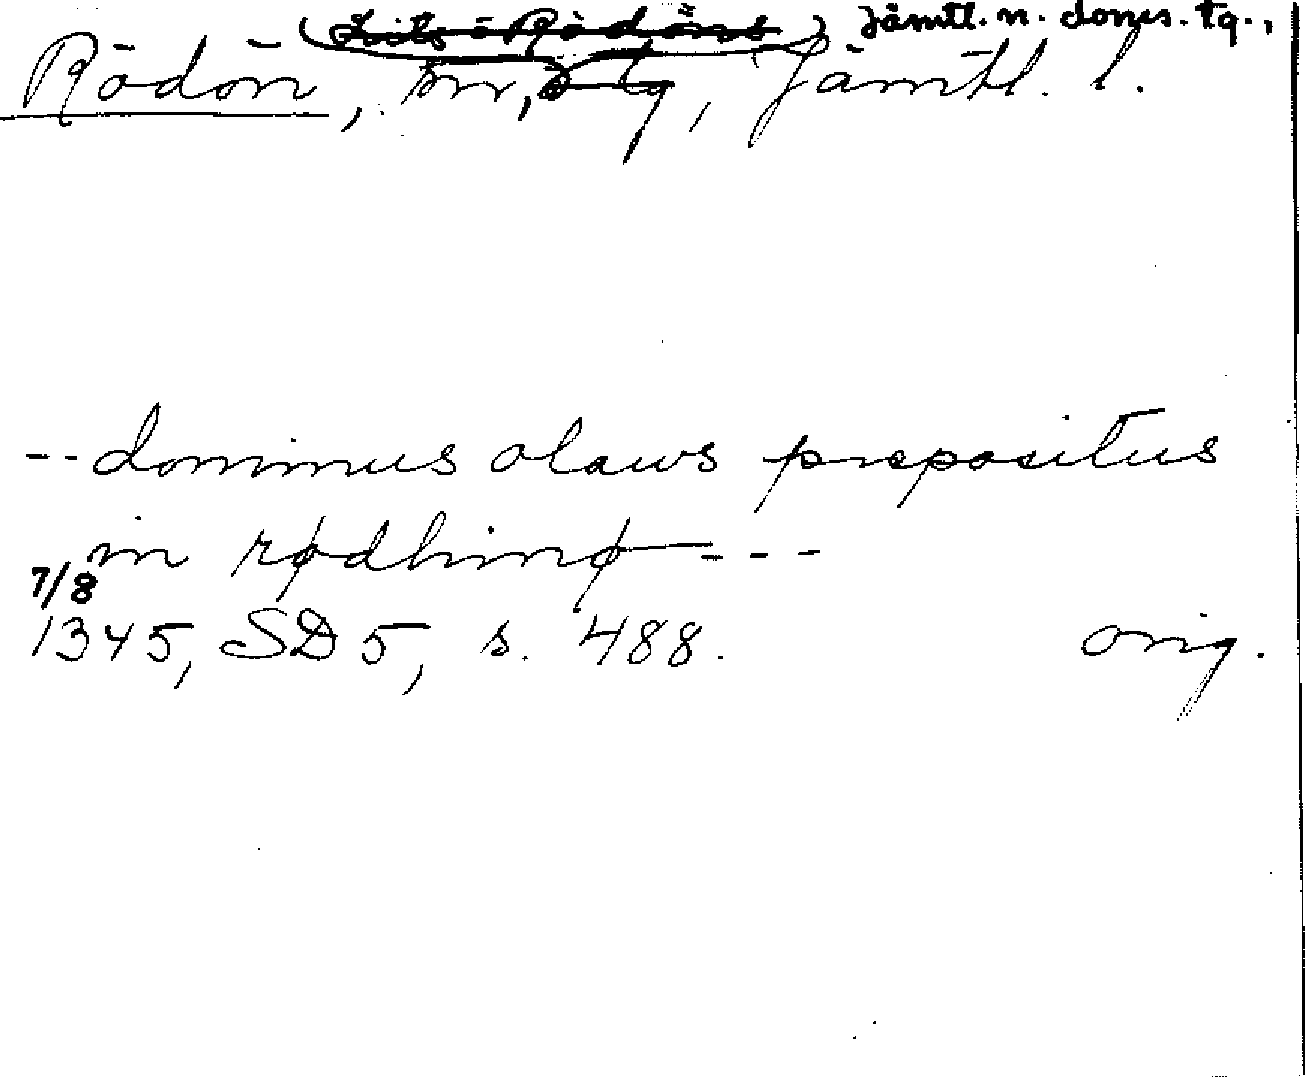 (Lits o Rödöns) Jämtl. n. doms. tg.,
Rödön, sn, tg, Jämtl. l.
-- dominus olaws prepositus
in rødhinø ---
7/8
1345, SD 5, s. 488. orig.